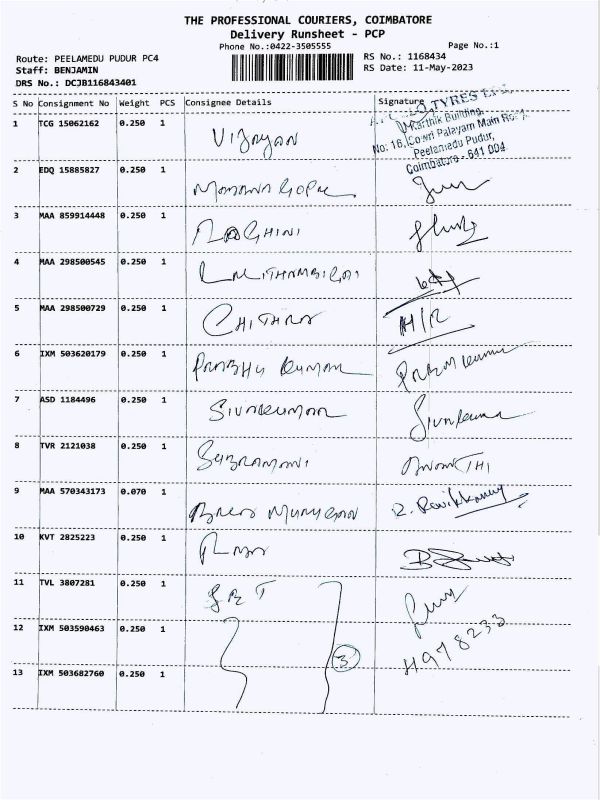 THE PROFESSIONAL COURIERS, COIMBATORE
Delivery Runsheet - PCP
Phone No.:0422-3505555
Page No.:1
Route: PEELAMEDU PUDUR PC4
RS No.: 1168434
Staff: BENJAMIN
RS Date: 11-May-2023
DRS No.: DCJB116843401
S No Consignment No Weight PCS Consignee Details Signature
TYRES
Karthik Building,
No: 16, Gowri Palayam Main Road
Peelamedu Pudur,
Coimbatore - 641 004
1 TCG 15062162 0.250 1 VIJAYAN
2 EDQ 15885827 0.250 1
3 MAA 859914448 0.250 1 RAGHINI
4 MAA 298500545 0.250 1 LALITHAMBIGAI
5 MAA 298500729 0.250 1 CHITHRA H/R
6 IXM 503620179 0.250 1 PRABHU KUMAR
7 ASD 1184496 0.250 1 SIVAKUMAR Sivakumar
8 TVR 2121038 0.250 1 SUBRAMANI
9 MAA 570343173 0.070 1 BALA MURUGAN
10 KVT 2825223 0.250 1
11 TVL 3807281 0.250 1
12 IXM 503590463 0.250 1
3
13 IXM 503682760 0.250 1